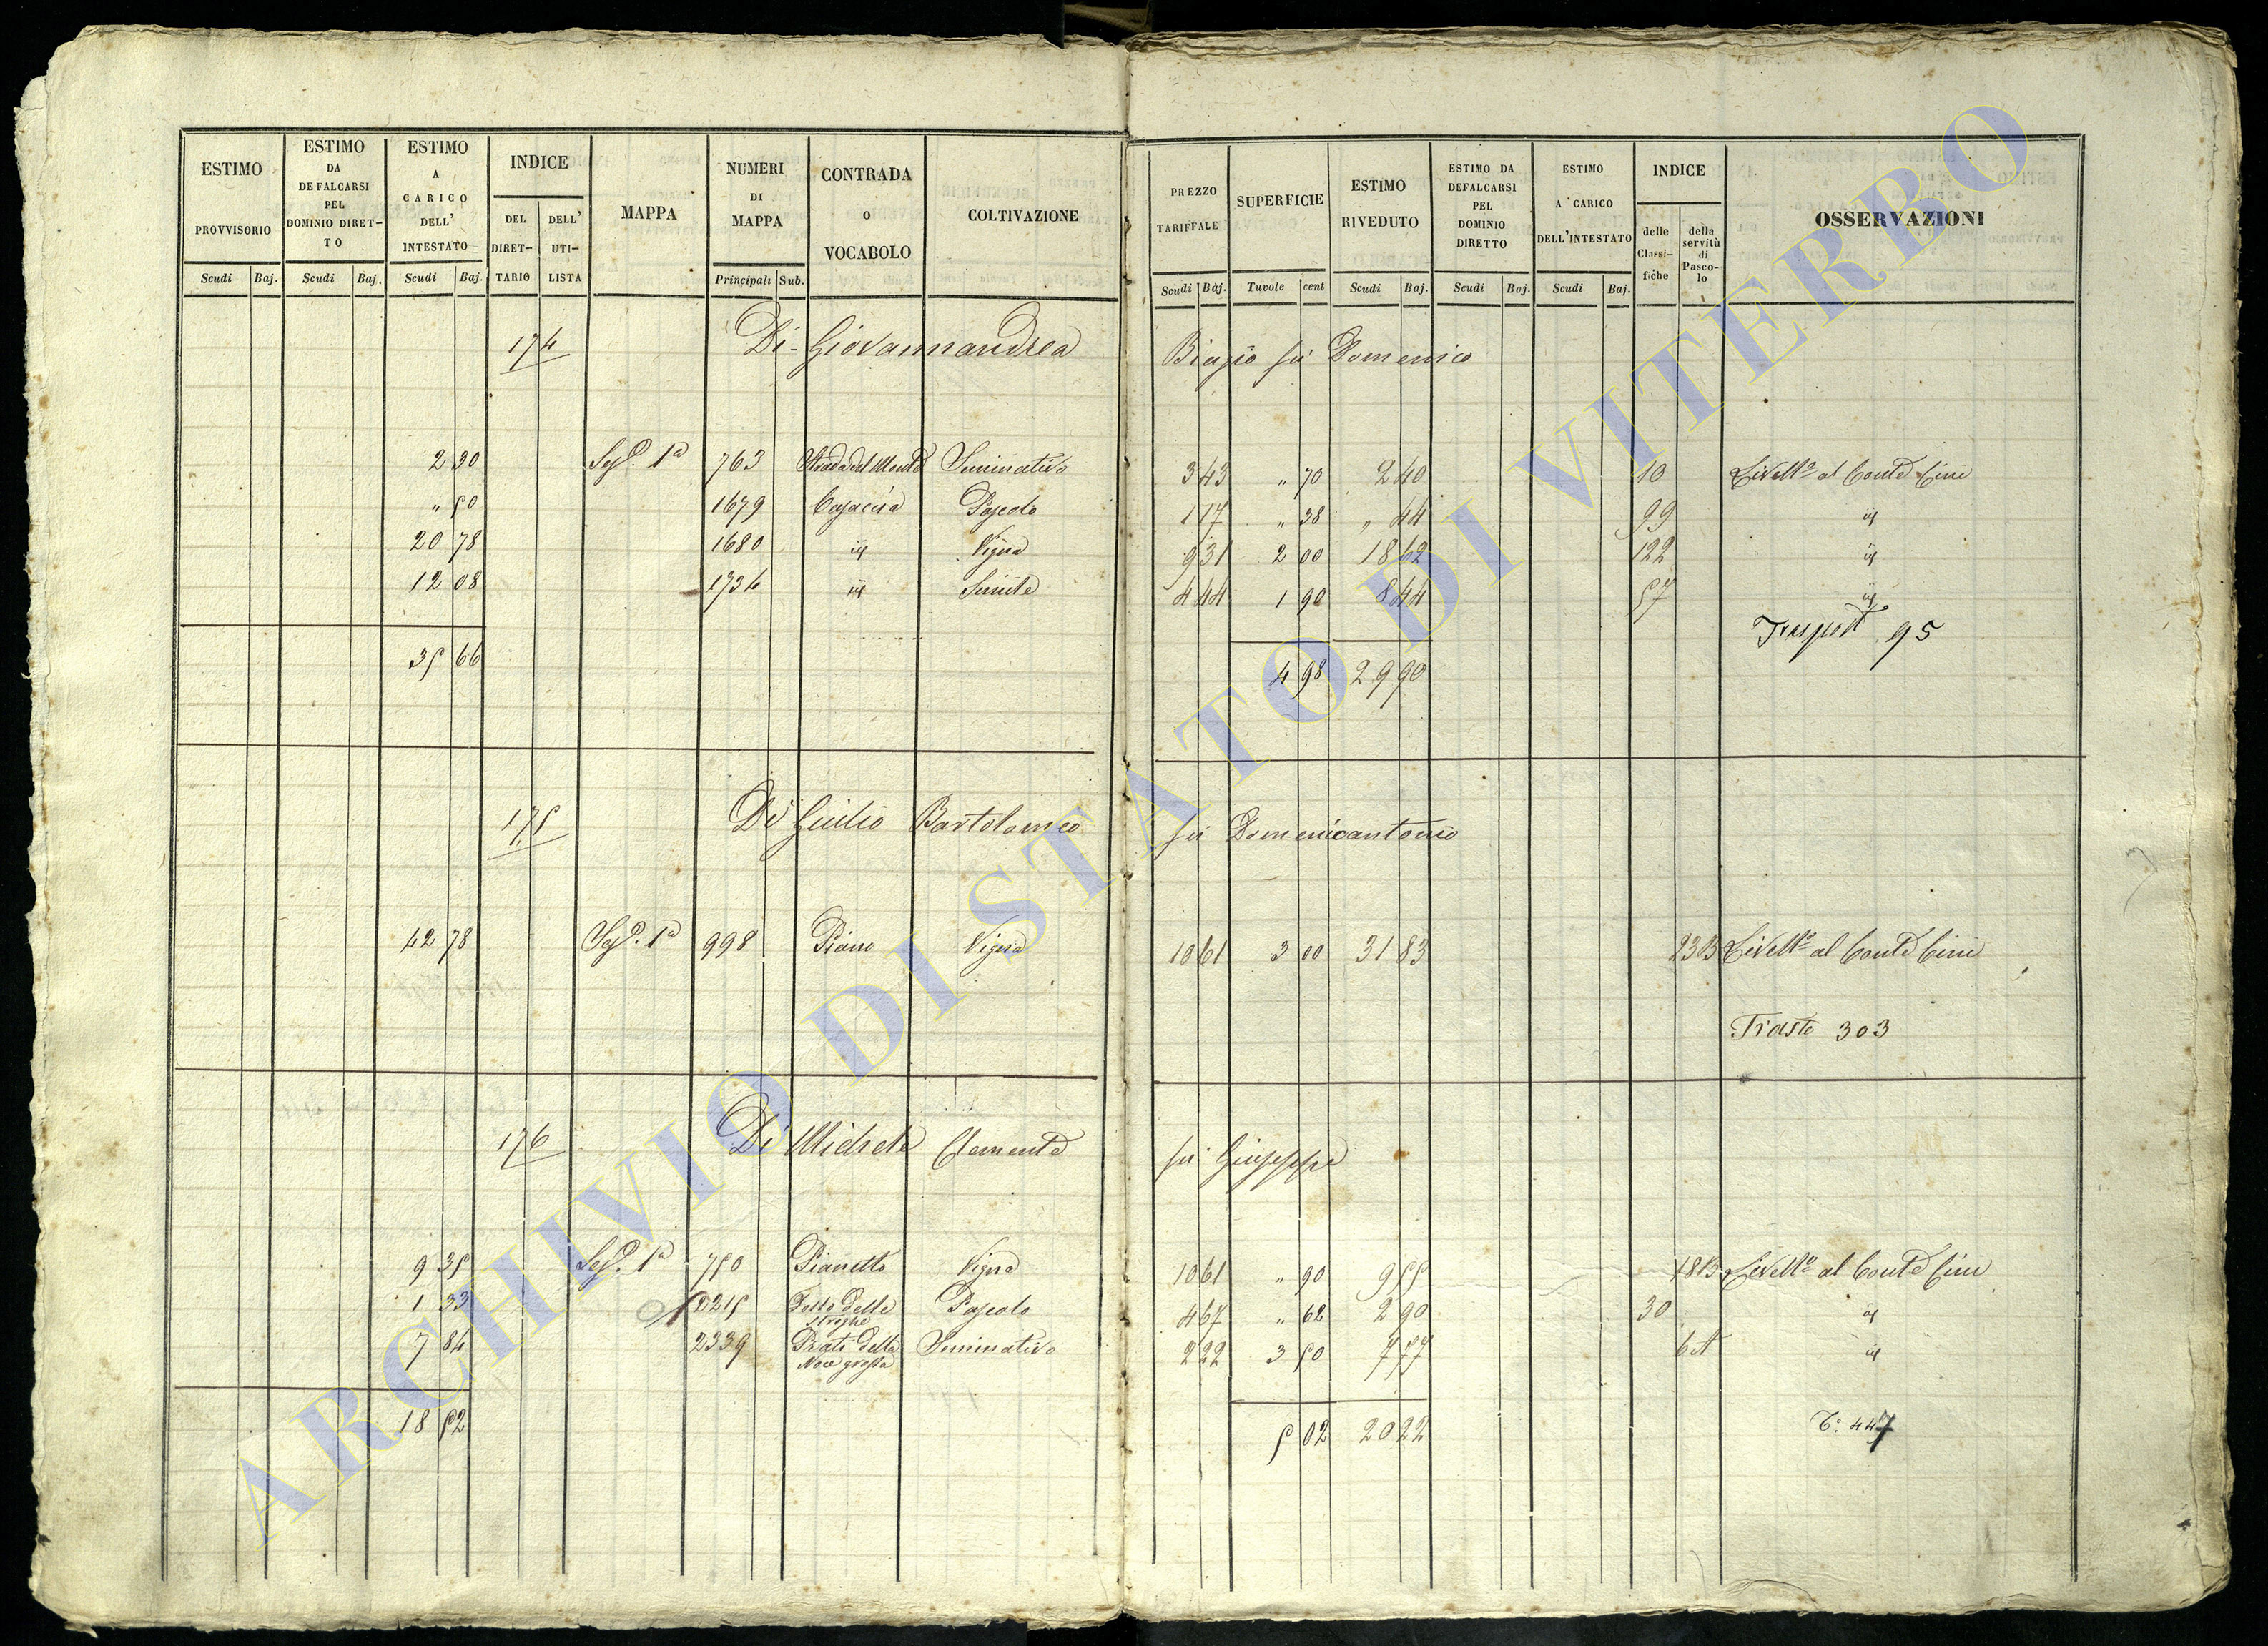 ESTIMO PROVVISORIO Scudi Baj.
ESTIMO DA DEFALCARSI PEL DOMINIO DIRET-TO Scudi Baj.
ESTIMO A CARICO DELL' INTESTATO Scudi Baj.
INDICE DEL DIRET-TARIO DELL' UTI-LISTA
MAPPA
NUMERI DI MAPPA Principali Sub.
CONTRADA O VOCABOLO
COLTIVAZIONE
PREZZO TARIFFALE Scudi Baj.
SUPERFICIE Tavole cent
ESTIMO RIVEDUTO Scudi Baj.
ESTIMO DA DEFALCARSI PEL DOMINIO DIRETTO Scudi Baj.
ESTIMO A CARICO DELL'INTESTATO Scudi Baj.
INDICE delle Classi-fiche della servitù di Pasco-lo
OSSERVAZIONI
174 Di Giovannandrea Biagio fu Domenico
2 30 Sez. 1a 763 Strada del Monte Seminativo 3 43 " 70 2 40 10 Livell° al Conte Cini
" 50 1679 Pascolo 1 17 " 38 " 44 99 id
20 78 1680 id Vigna 9 31 2 00 18 62 122 id
12 08 1734 id 4 44 1 90 8 44 57 id
Trasport 95
35 66 4 98 29 90
175 Di Giulio Bartolomeo fu Domenicantonio
42 78 Sez. 1a 998 Piano Vigna 10 61 3 00 31 83 Livell° al Conte Cini
Trasto 303
176 Di Michele Clemente fu Giuseppe
9 35 Sez. 1a 750 Pianetto Vigna 10 61 " 90 9 55 Livell° al Conte Cini
1 33 2215 Fosso delle Streghe Pascolo 4 67 " 62 2 90 30 id
7 84 2339 Prati della Noce grossa Seminativo 2 22 3 50 7 77 id
18 52 5 02 20 22 T° 447
ARCHIVIO DI STATO DI VITERBO